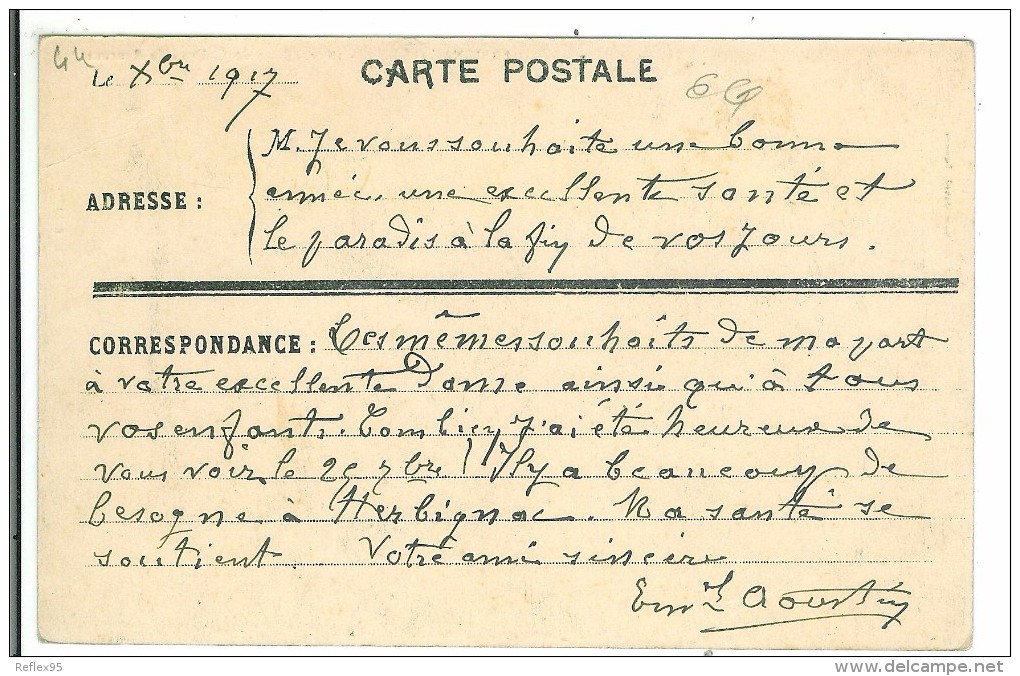 44
le Xbre 1917
CARTE POSTALE
M. Je vous souhaite une bonne
ADRESSE : année, une excellente santé et
le paradis à la fin de vos jours.
CORRESPONDANCE : Les mêmes souhaits de ma part
à votre excellente Dame ainsi qu'à tous
vos enfants. Combien j'ai été heureux de
vous voir le 7bre ! Il y a beaucoup de
besogne à Herbignac. Ma santé se
soutient. Votre ami sincère
Reflex95
http://www.delcampe.net